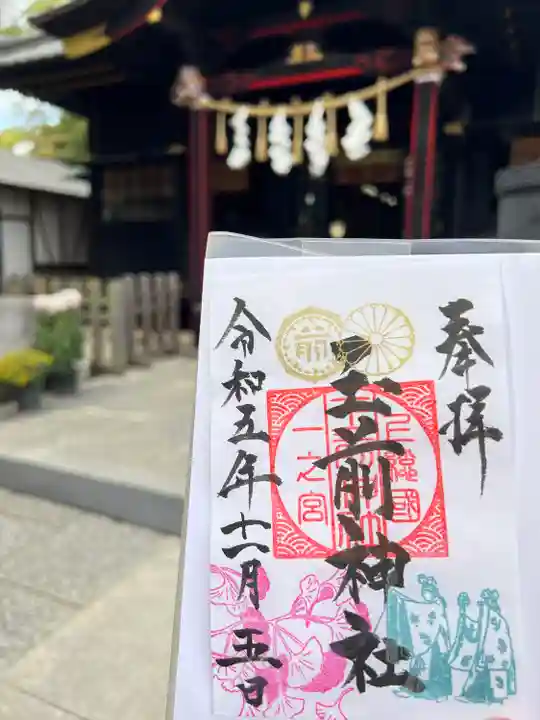 奉拝
上総國
玉前神社
一之宮
前
令和五年十一月五日